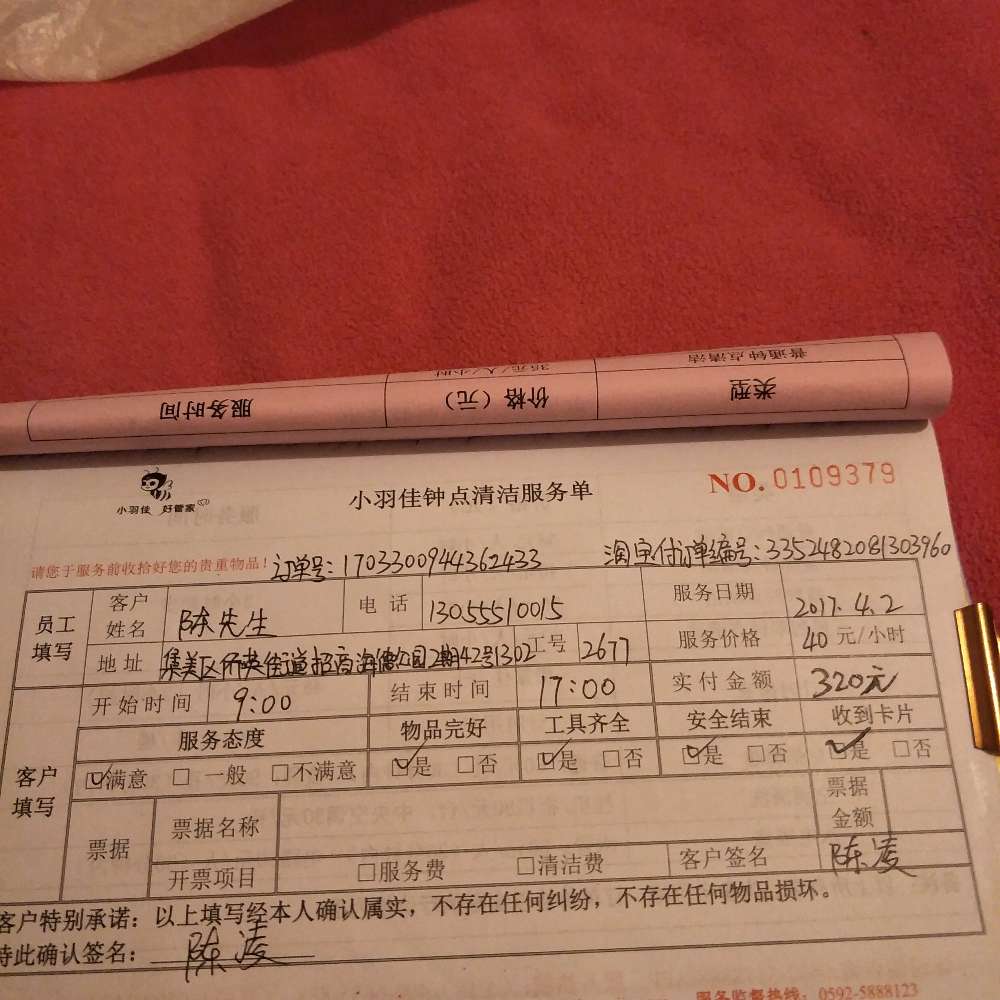 普通钟点清洁 35元/人/小时
类型 价格（元） 服务时间
小羽佳 好管家
小羽佳钟点清洁服务单
NO. 0109379
请您于服务前收拾好您的贵重物品！ 订单号：1703300944362433 淘宝付订单编号：3352482081303960
员工填写 客户姓名 陈先生 电话 13055510015 服务日期 2017.4.2
地址 集美区侨英街道招商海德公园2期42号1302 工号 2677 服务价格 40 元/小时
客户填写 开始时间 9:00 结束时间 17:00 实付金额 320元
服务态度 物品完好 工具齐全 安全结束 收到卡片
☑满意 □一般 □不满意 ☑是 □否 ☑是 □否 ☑是 □否 ☑是 □否
票据 票据名称 票据金额
开票项目 □服务费 □清洁费 客户签名 陈凌
客户特别承诺：以上填写经本人确认属实，不存在任何纠纷，不存在任何物品损坏。
特此确认签名： 陈凌
服务监督热线：0592-5888123